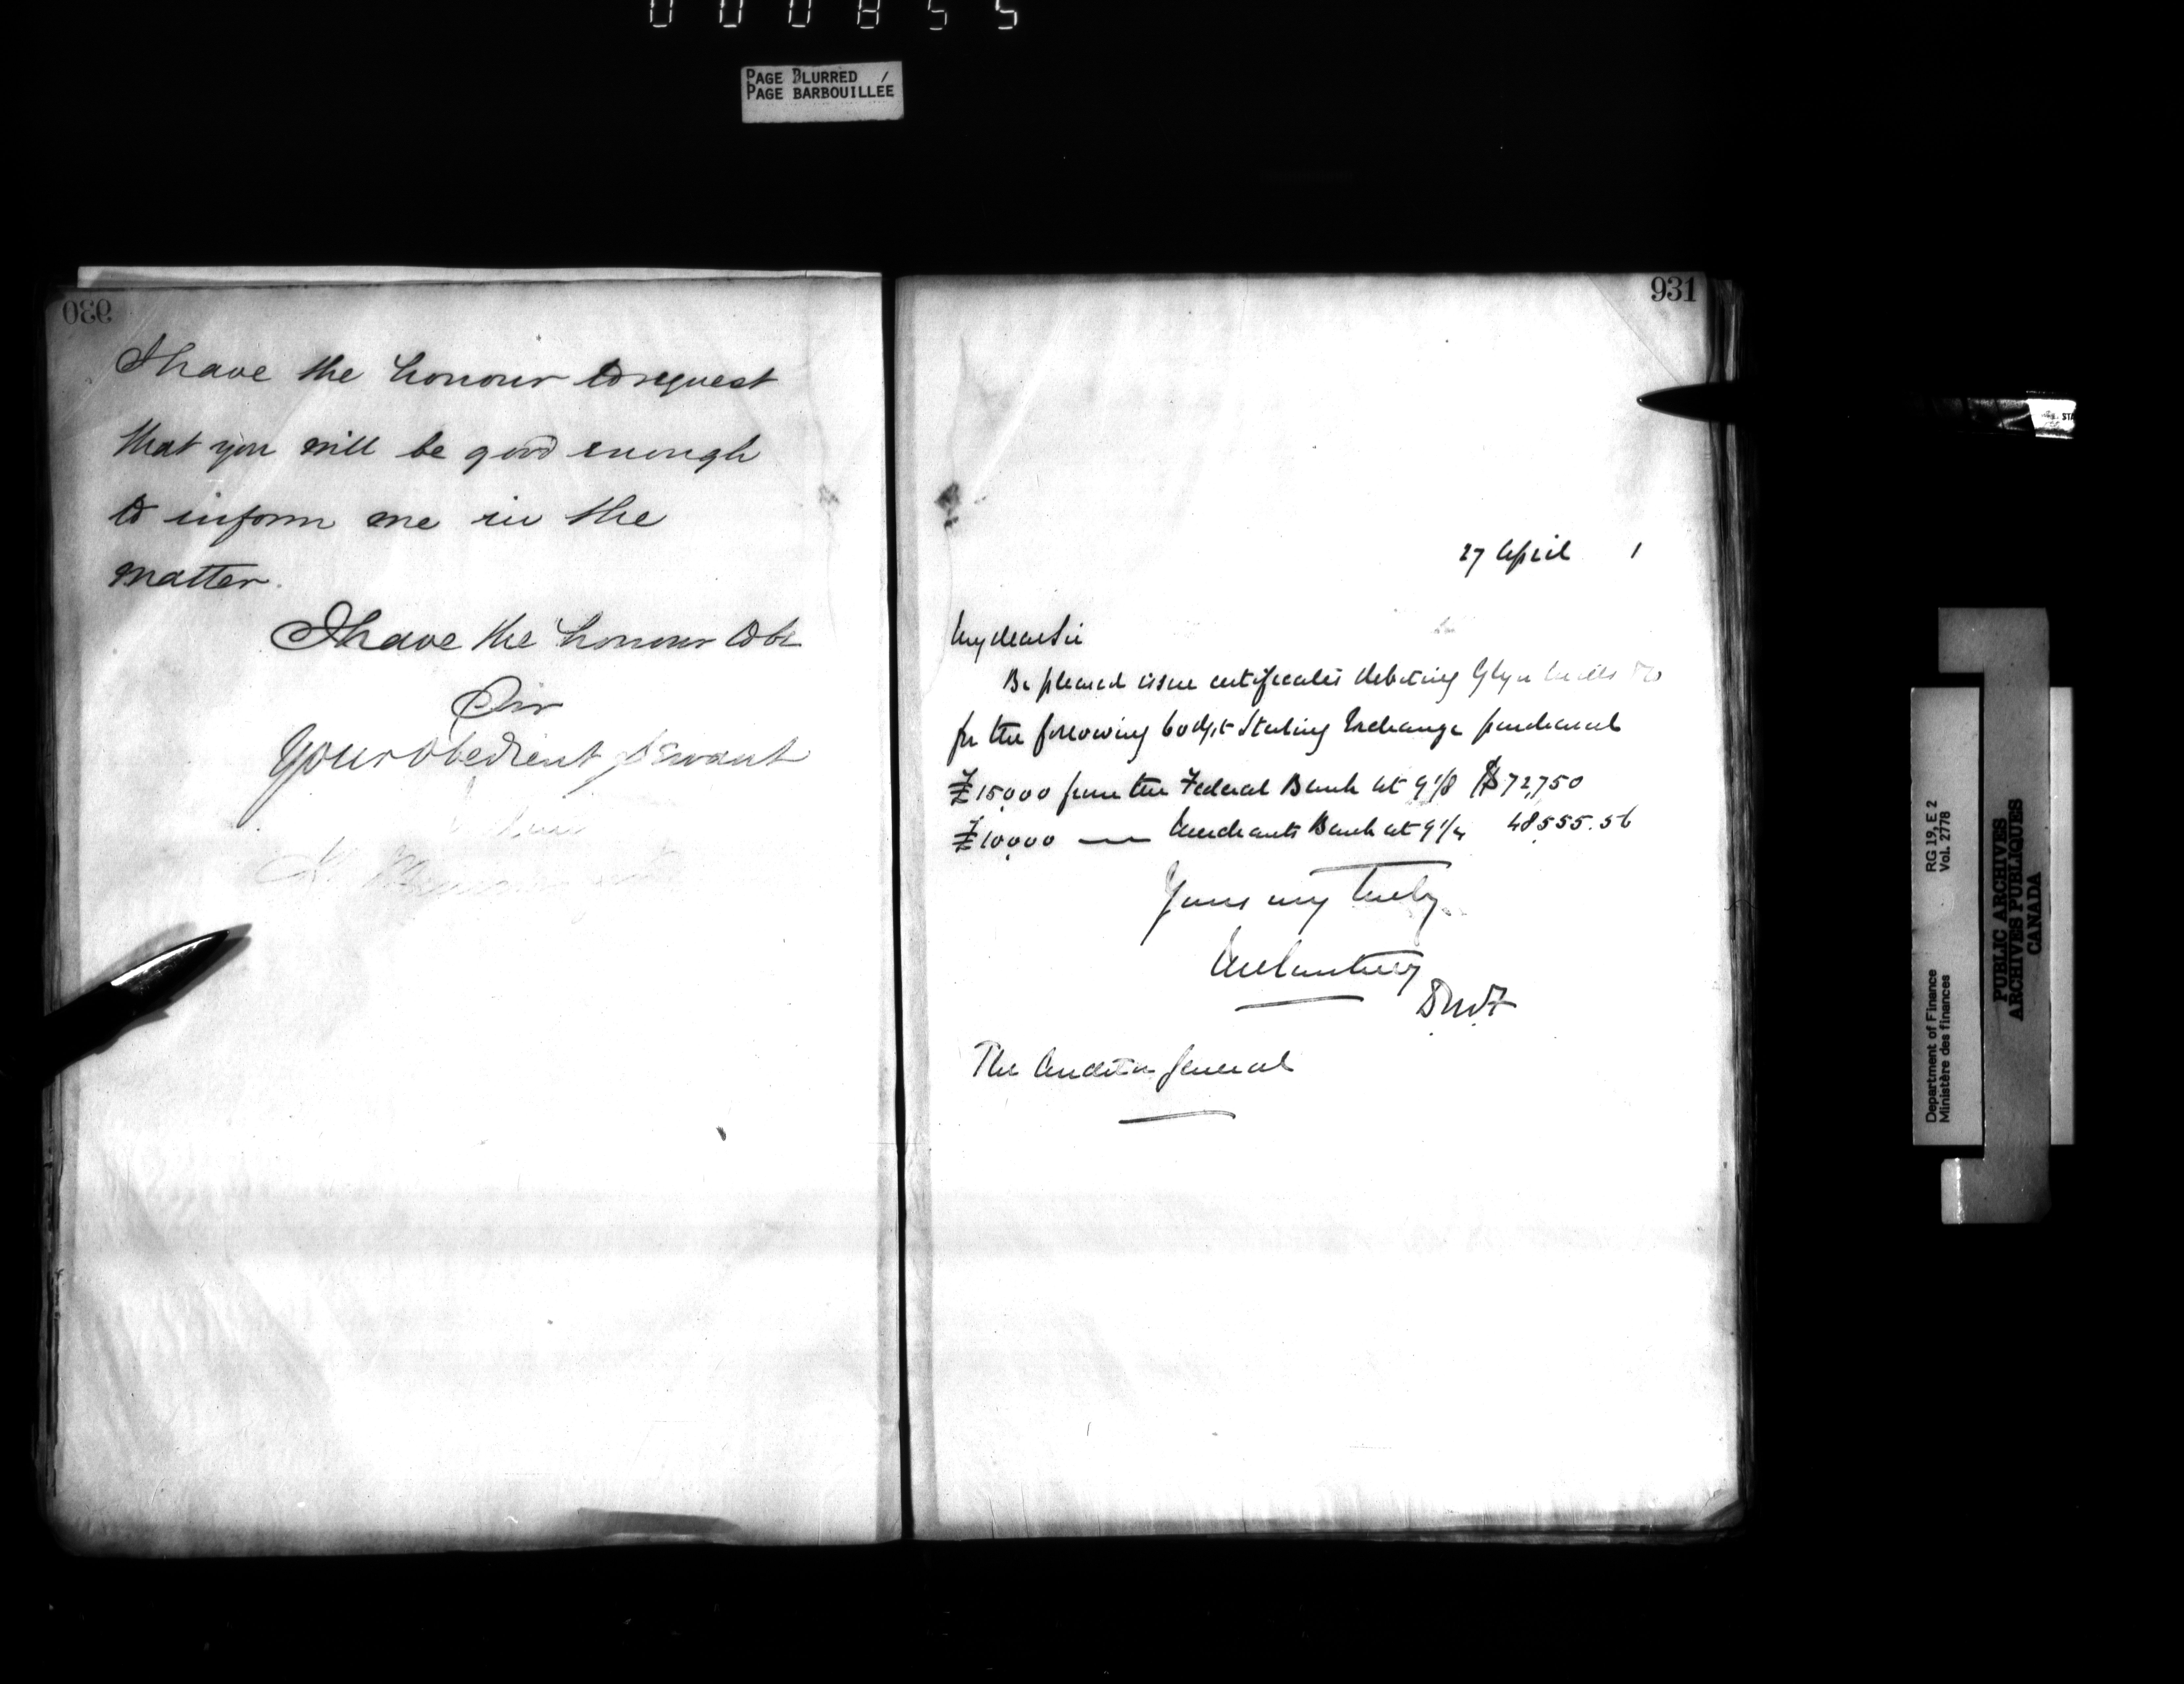 000855
PAGE BLURRED
PAGE BARBOUILLÉE
930
I have the honour to request
that you will be good enough
to inform me in the
matter.
I have the honour to be
Sir
Your obedient Servant
931
27 April 1
My dear Sir
Be pleased issue certificates debiting Glyn Mills & Co
for the following 60 d/st Sterling Exchange purchased
£15,000 from the Federal Bank at 9 1/8 $72,750
£10,000 — Merchants Bank at 9 1/4 48,555.56
Yours very truly
DMF
The Auditor General
RG 19, E 2
Vol. 2778
Department of Finance
Ministère des finances
PUBLIC ARCHIVES
ARCHIVES PUBLIQUES
CANADA